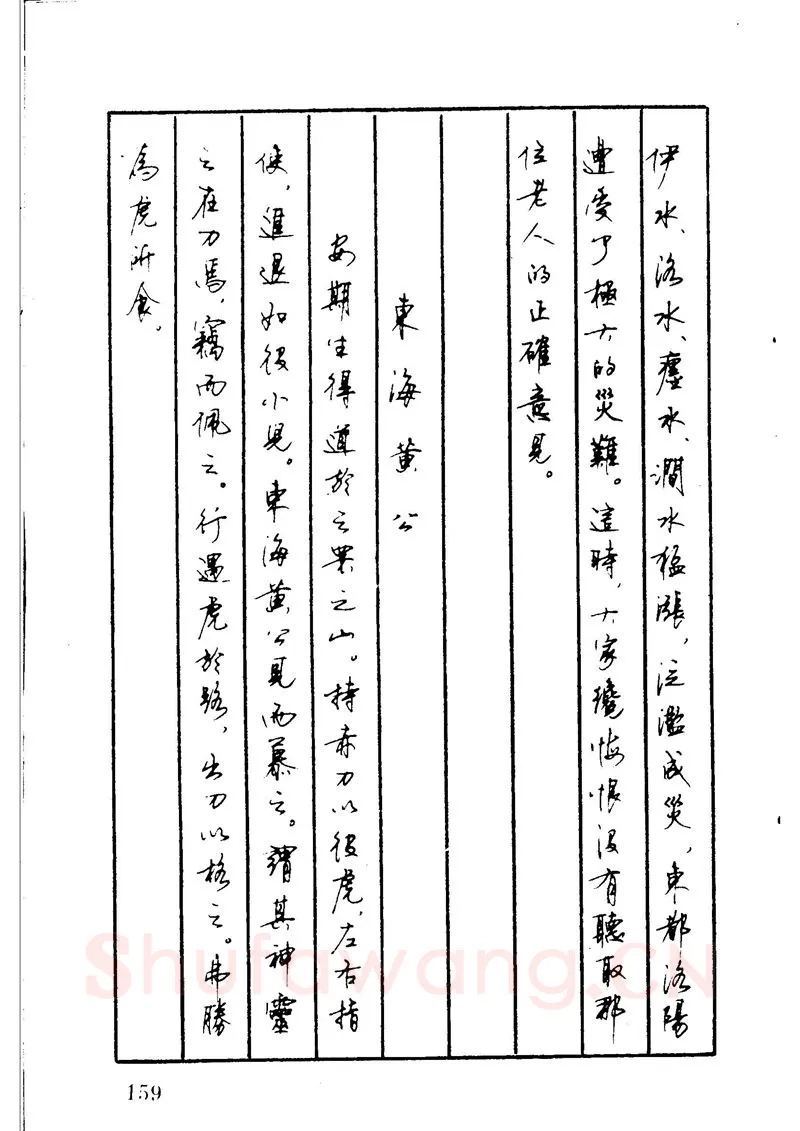 伊水、洛水、瀍水、澗水猛漲，泛濫成災，東都洛陽
遭受了極大的災難。這時，大家纔悔恨沒有聽取那
位老人的正確意見。
東海黃公
安期生得道於之罘之山。持赤刀以役虎，左右指
使，進退如役小兒。東海黃公見而慕之。謂其神靈
之在刀焉，竊而佩之。行遇虎於路，出刀以格之。弗勝
為虎所食。
Shufawang.CN
159